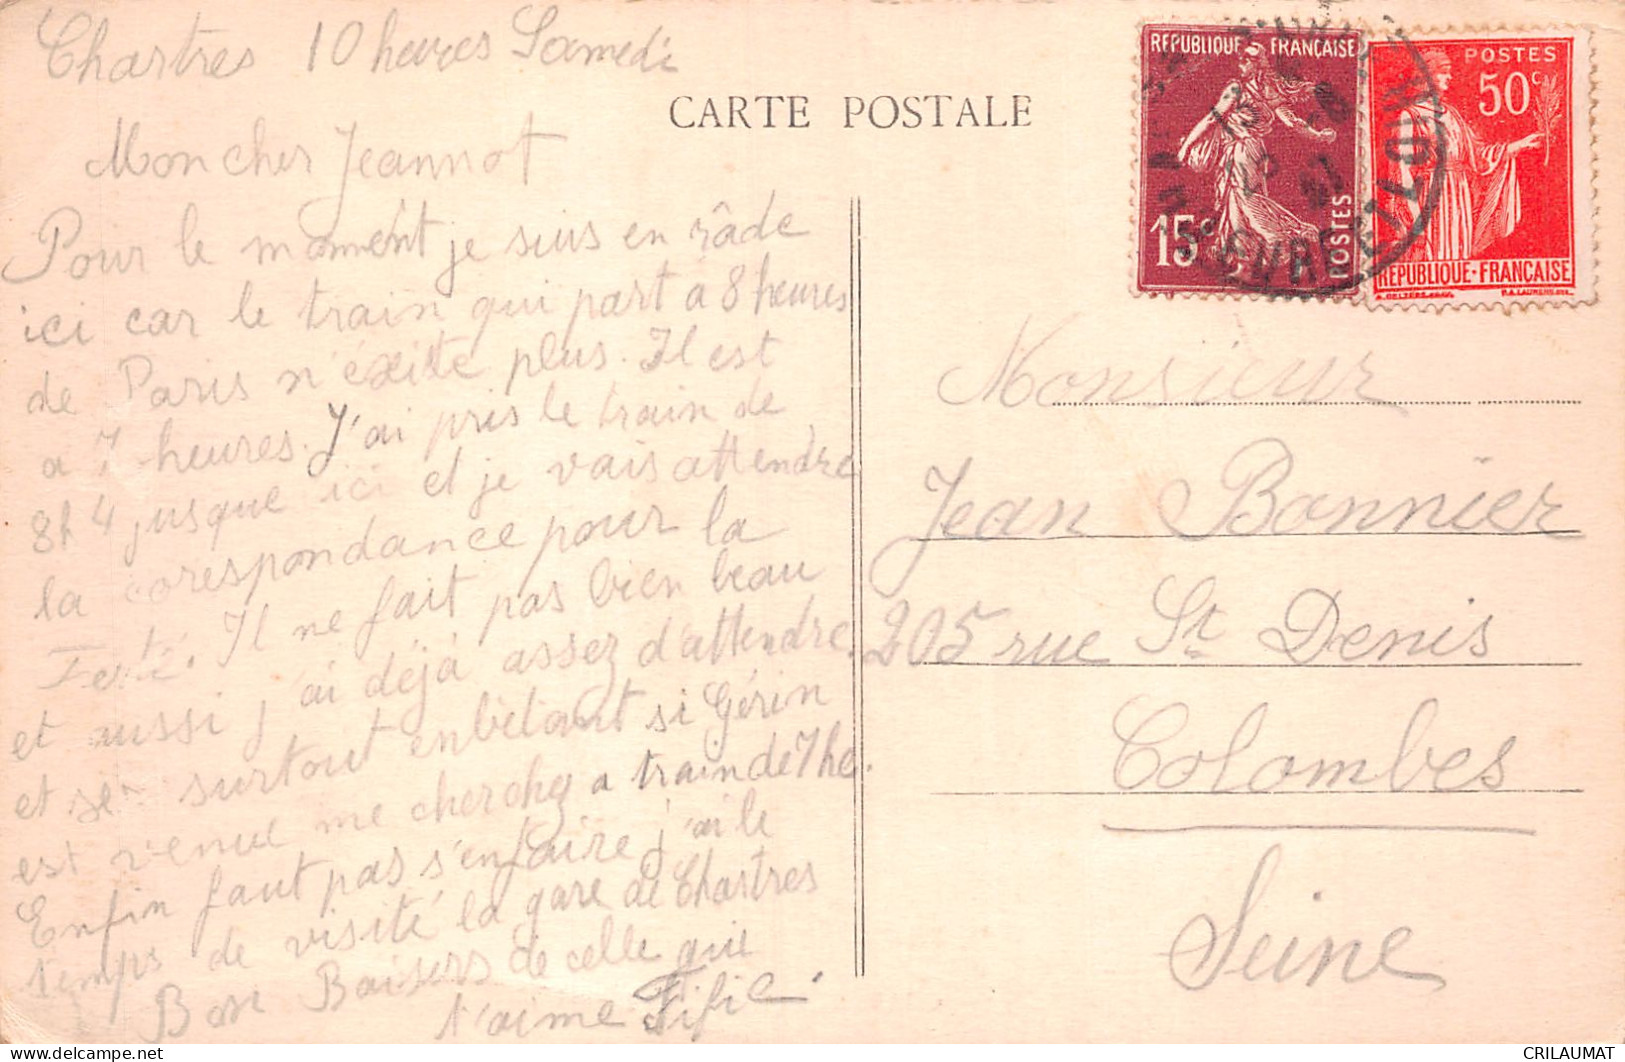 Chartres 10 heures Samedi
CARTE POSTALE
Mon cher Jeannot
Pour le moment je suis en râde
ici car le train qui part a 8 heures
de Paris n'éxiste plus. Il est
a 7 heures. J'ai pris le train de
8h 4 jusque ici et je vais attendre
la corespondance pour la
Ferté. Il ne fait pas bien beau
et aussi j'ai déjà assez d'attendre.
et surtout enbêtant si Gérin
est venue me cherchez a train de 7 he.
Enfin faut pas s'enfaire j'ai le
temps de visité la gare de Chartres
Bon Baisers de celle qui
t'aime Fifie
REPUBLIQUE FRANÇAISE
15c
POSTES
POSTES
50c
REPUBLIQUE-FRANÇAISE
Monsieur
Jean Bonnier
205 rue St Denis
Colombes
Seine
CRILAUMAT